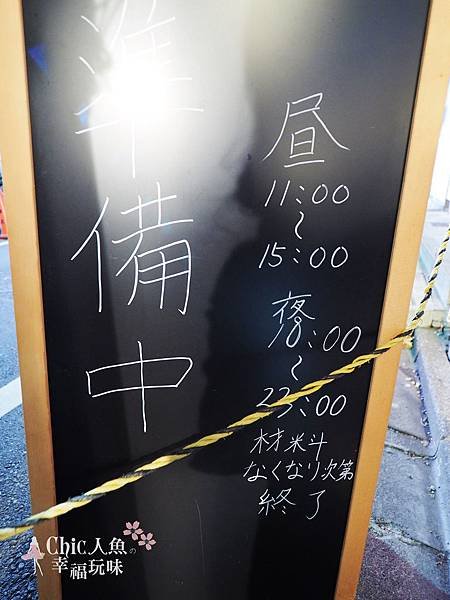 準備中
昼
11:00
~
15:00
夜
18:00
~
23:00
材料
なくなり次第
終了
Chic人魚の
幸福玩味